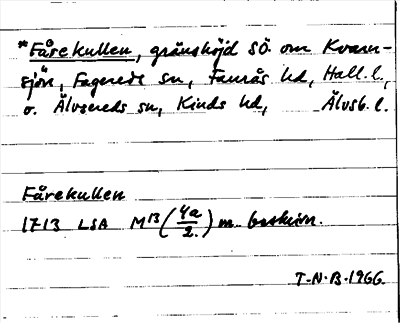 *Fårekullen, gränshöjd SÖ. om Kvarn-
sjön, Fagereds sn, Faurås hd, Hall. l.,
o. Älvsereds sn, Kinds hd, Älvsb. l.
Fårekullen
1713 LSA M13 (4a/2) m. beskrivn.
T-N-B-1966.